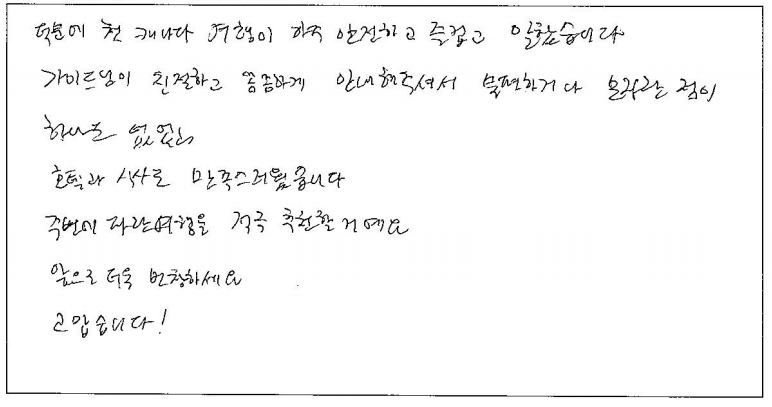 덕분에 첫 캐나다 여행이 아주 안전하고 즐겁고 알찼습니다
가이드님이 친절하고 꼼꼼하게 안내해주셔서 불편하거나 모자란 점이
하나도 없었고
호텔과 식사도 만족스러웠습니다
주변에 파란여행을 적극 추천할거예요
앞으로 더욱 번창하세요
고맙습니다!